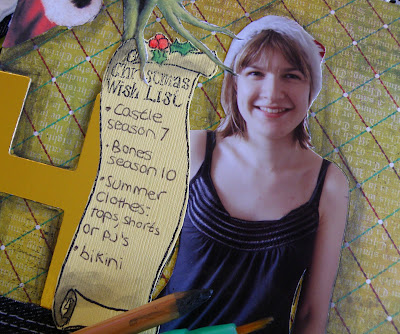 Christmas
Wish List
• Castle
season 7
• Bones
season 10
• Summer
clothes:
tops shorts
or pj's
• bikini